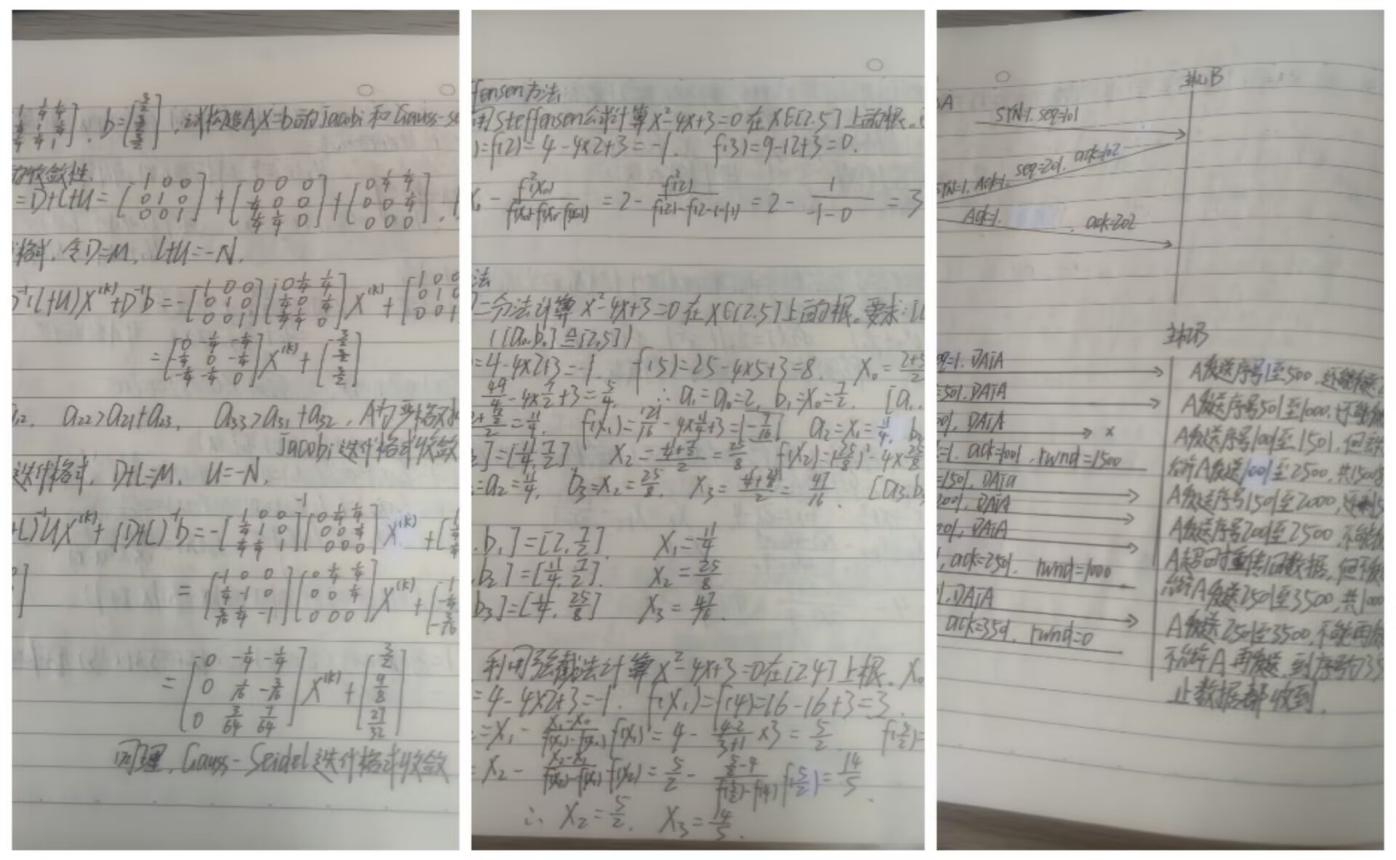 b=[3/2 3/2 3/2], 试构造AX=b的Jacobi和Gauss-Se
的收敛性.
=D+L+U= [1 0 0; 0 1 0; 0 0 1] + [0 0 0; 1/4 0 0; 1/4 1/4 0] + [0 1/4 1/4; 0 0 1/4; 0 0 0].
格式, 令D=M, L+U=-N.
D⁻¹(L+U)X⁽ᵏ⁾+D⁻¹b = -[1 0 0; 0 1 0; 0 0 1][0 1/4 1/4; 1/4 0 1/4; 1/4 1/4 0]X⁽ᵏ⁾+
=[0 -1/4 -1/4; -1/4 0 -1/4; -1/4 -1/4 0]X⁽ᵏ⁾+[3/2; 3/2; 3/2]
a₁₂. a₂₂>a₂₁+a₂₃, a₃₃>a₃₁+a₃₂, A为严格对
Jacobi迭代格式收敛
迭代格式, D+L=M, U=-N.
+L)⁻¹UX⁽ᵏ⁾+(D+L)⁻¹b=-[1 0 0; 1/4 1 0; 1/4 1/4 1]⁻¹[0 1/4 1/4; 0 0 1/4; 0 0 0]X⁽ᵏ⁾+
=[-1 0 0; 1/4 -1 0; 3/16 1/4 -1][0 1/4 1/4; 0 0 1/4; 0 0 0]X⁽ᵏ⁾+
=[0 -1/4 -1/4; 0 1/16 -3/16; 0 3/64 7/64]X⁽ᵏ⁾+[3/2; 9/8; 27/32]
同理, Gauss-Seidel迭代格式收敛
ffensen方法
用Steffensen公式计算x²-4x+3=0在x∈[2.5]上的根.
)=f(2)=4-4×2+3=-1. f(3)=9-12+3=0.
=2- f²(2)/f(2)-f(2-1-1) =2- 1/-1-0 =3
法
二分法计算x²-4x+3=0在x∈[2,5]上的根. 要求:
([a₀.b₀]≙[2,5])
=4-4×2+3=-1. f(5)=25-4×5+3=8. X₀=2+5/2
49/4-4×7/2+3=5/4. ∴ a₁=a₀=2, b₁=x₀=7/2. [a₁.
=11/4. f(x₁)=121/16-4×11/4+3=-7/16 a₂=x₁=11/4. b₂
]=[11/4.7/2] X₂= =25/8 f(x₂)=(25/8)²-4×25/8
=a₂=11/4. b₃=x₂=25/8. X₃= =47/16 [a₃.b₃
.b₁]=[2.7/2] X₁=11/4
b₂]=[11/4.7/2]. X₂=25/8
b₃]=[11/4.25/8] X₃=47/16.
利用弦截法计算x²-4x+3=0在[2.4]上根. X₀
=4-4×2+3=-1. f(x₁)=f(4)=16-16+3=3.
=X₁- X₁-X₀/f(x₁)-f(x₀) f(x₁)=4- 4-2/3+1 ×3=5/2.
=X₂- X₂-X₁/f(x₂)-f(x₁) f(x₂)=5/2- 5/2-4/f(5/2)-f(4) f(5/2)=14/5.
∴ X₂=5/2. X₃=14/5.
主机B
A
SYN=1. seq=101
SYN=1. Ack=1. seq=201. ack=102
Ack=1. ack=202
主机B
=1. DATA
A发送序号1至500.
=501. DATA
A发送序号501至1000.
01, DATA ×
A发送序号1001至1501,
=1. ack=1001. rwnd=1500
允许A发送1001至2500, 共1500
=1501. DATA
A发送序号1501至2000,
=2001. DATA
A发送序号2001至2500, 不能
01. DATA
A超时重传旧数据, 但不能
, ack=2501. rwnd=1000
允许A发送2501至3500, 共1000
1. DATA
A发送2501至3500, 不能再
ack=3501. rwnd=0
不允许A再发送, 到序号为35
止数据都收到.